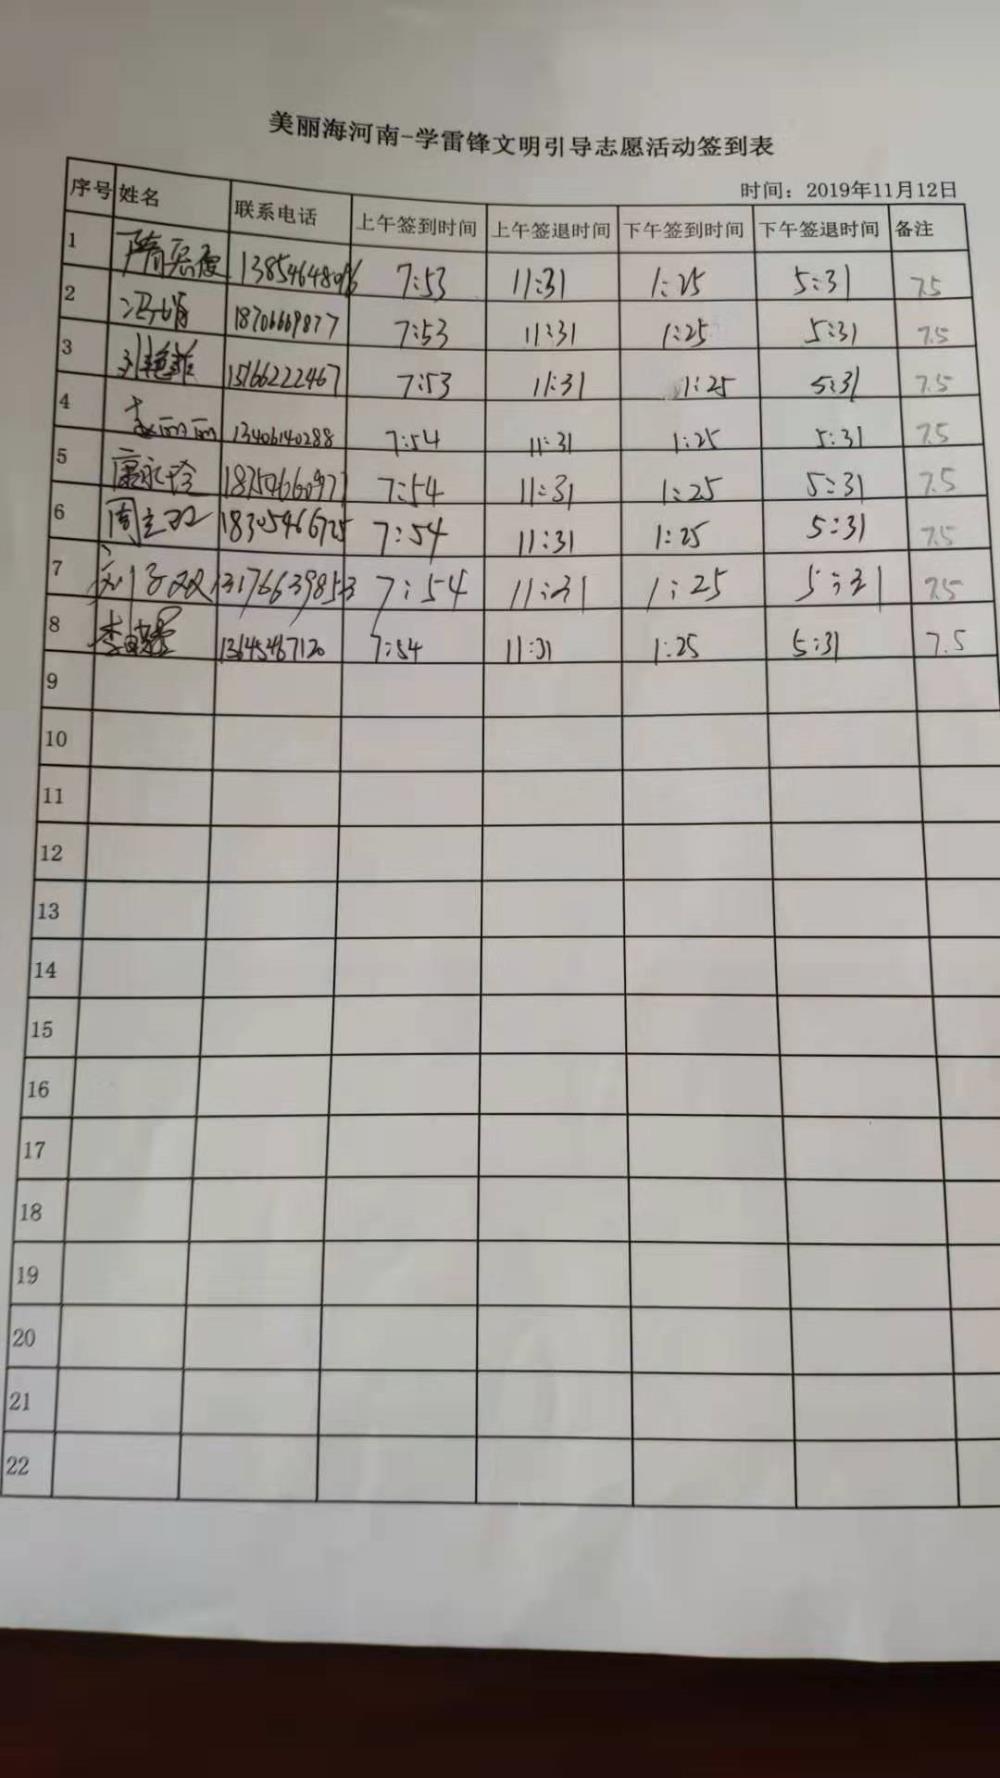 美丽海河南-学雷锋文明引导志愿活动签到表
时间：2019年11月12日
序号 姓名 联系电话 上午签到时间 上午签退时间 下午签到时间 下午签退时间 备注
1 7:53 11:31 1:25 5:31 7.5
2 冯娟 18706669877 7:53 11:31 1:25 5:31 7.5
3 15166222467 7:53 11:31 1:25 5:31 7.5
4 李丽丽 13406140288 7:54 11:31 1:25 5:31 7.5
5 康永玲 7:54 11:31 1:25 5:31 7.5
6 周立红 18305466725 7:54 11:31 1:25 5:31 7.5
7 刘子双 13176639853 7:54 11:31 1:25 5:31 7.5
8 13645467120 7:54 11:31 1:25 5:31 7.5
9
10
11
12
13
14
15
16
17
18
19
20
21
22